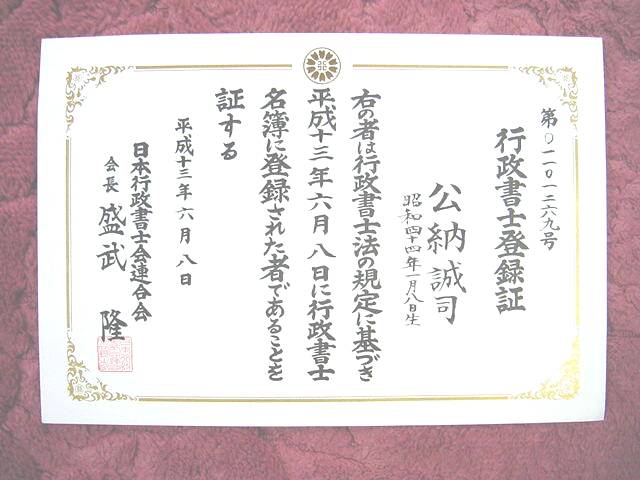 第〇一一〇一二六九号
行政書士登録証
公納誠司
昭和四十四年一月八日生
右の者は行政書士法の規定に基づき
平成十三年六月八日に行政書士
名簿に登録された者であることを
証する
平成十三年六月八日
日本行政書士会連合会
会長 盛武 隆